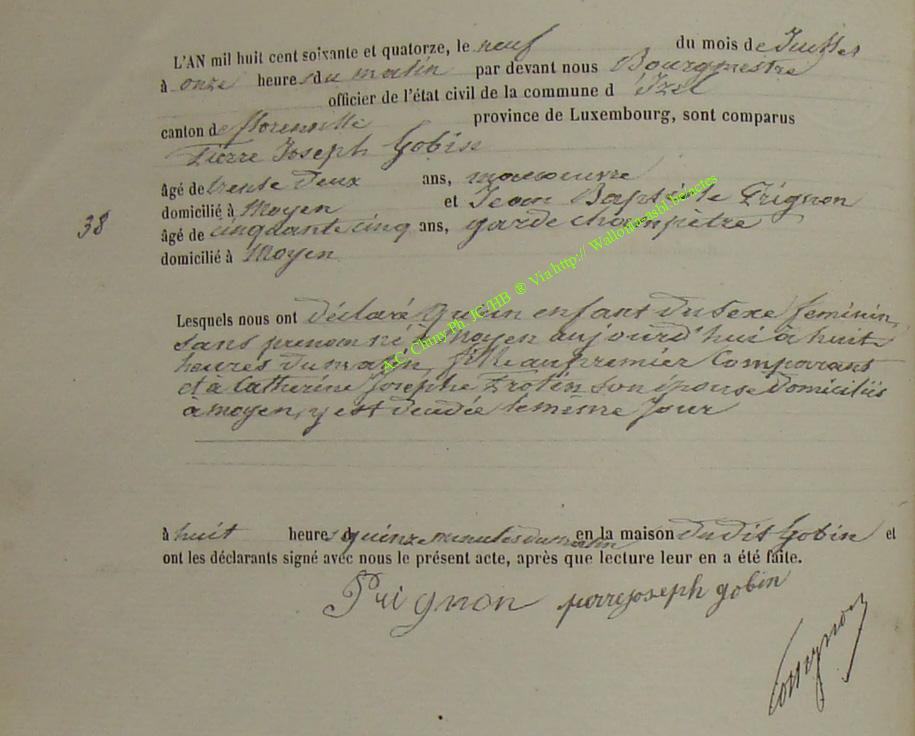 L'AN mil huit cent soixante et quatorze, le neuf du mois de Juillet
à onze heures du matin par devant nous Bourgmestre
officier de l'état civil de la commune d'Izel
canton de florenville province de Luxembourg, sont comparus
Pierre Joseph Gobin
âgé de trente deux ans, manoeuvre
domicilié à Moyen et Jean Baptiste Prignon
38
âgé de cinquante cinq ans, garde champêtre
domicilié à Moyen
Lesquels nous ont déclaré qu'un enfant du sexe féminin,
sans prénom né à moyen aujourd'hui à huit
heures du matin, fille au premier Comparant
et a Catherine Josephe son épouse domiciliés
a moyen, y est decedée le même Jour
à huit heures quinze minutes du matin en la maison dudit Gobin et
ont les déclarants signé avec nous le présent acte, après que lecture leur en a été faite.
Prignon pierre joseph gobin
A.C. Chiny Ph. JC/HB ® Via http://